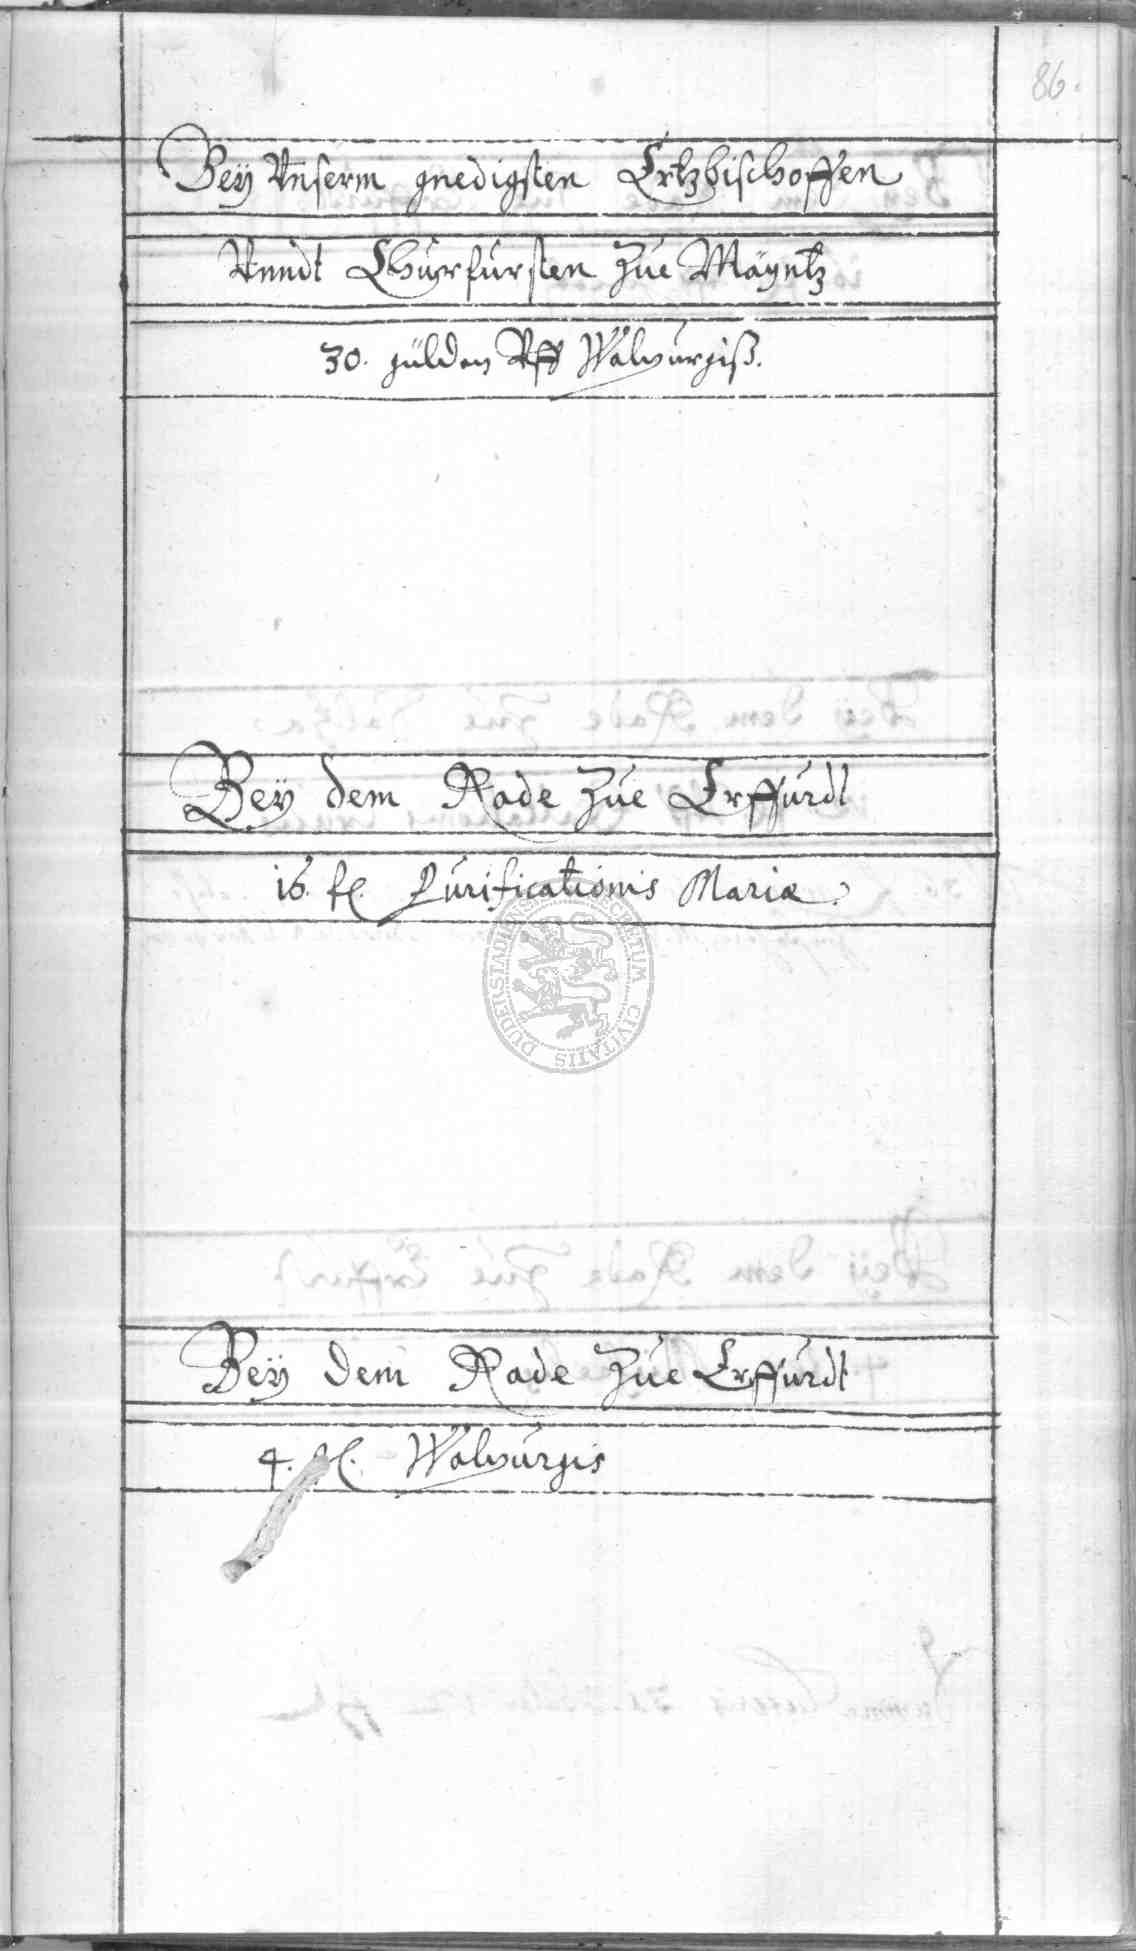 86.
Beÿ Vnserm gnedigsten Ertzbischoffen
Vnndt Churfursten Zue Mäyntz
30. gülden Vff Walpurgiß.
Bey dem Rade Zue Erffurdt
16. fl. Purificationis Mariæ.
SECRETUM CIVITATIS DUDERSTADENSIS
Beÿ dem Rade Zue Erffurdt
4. fl. Walpurgis